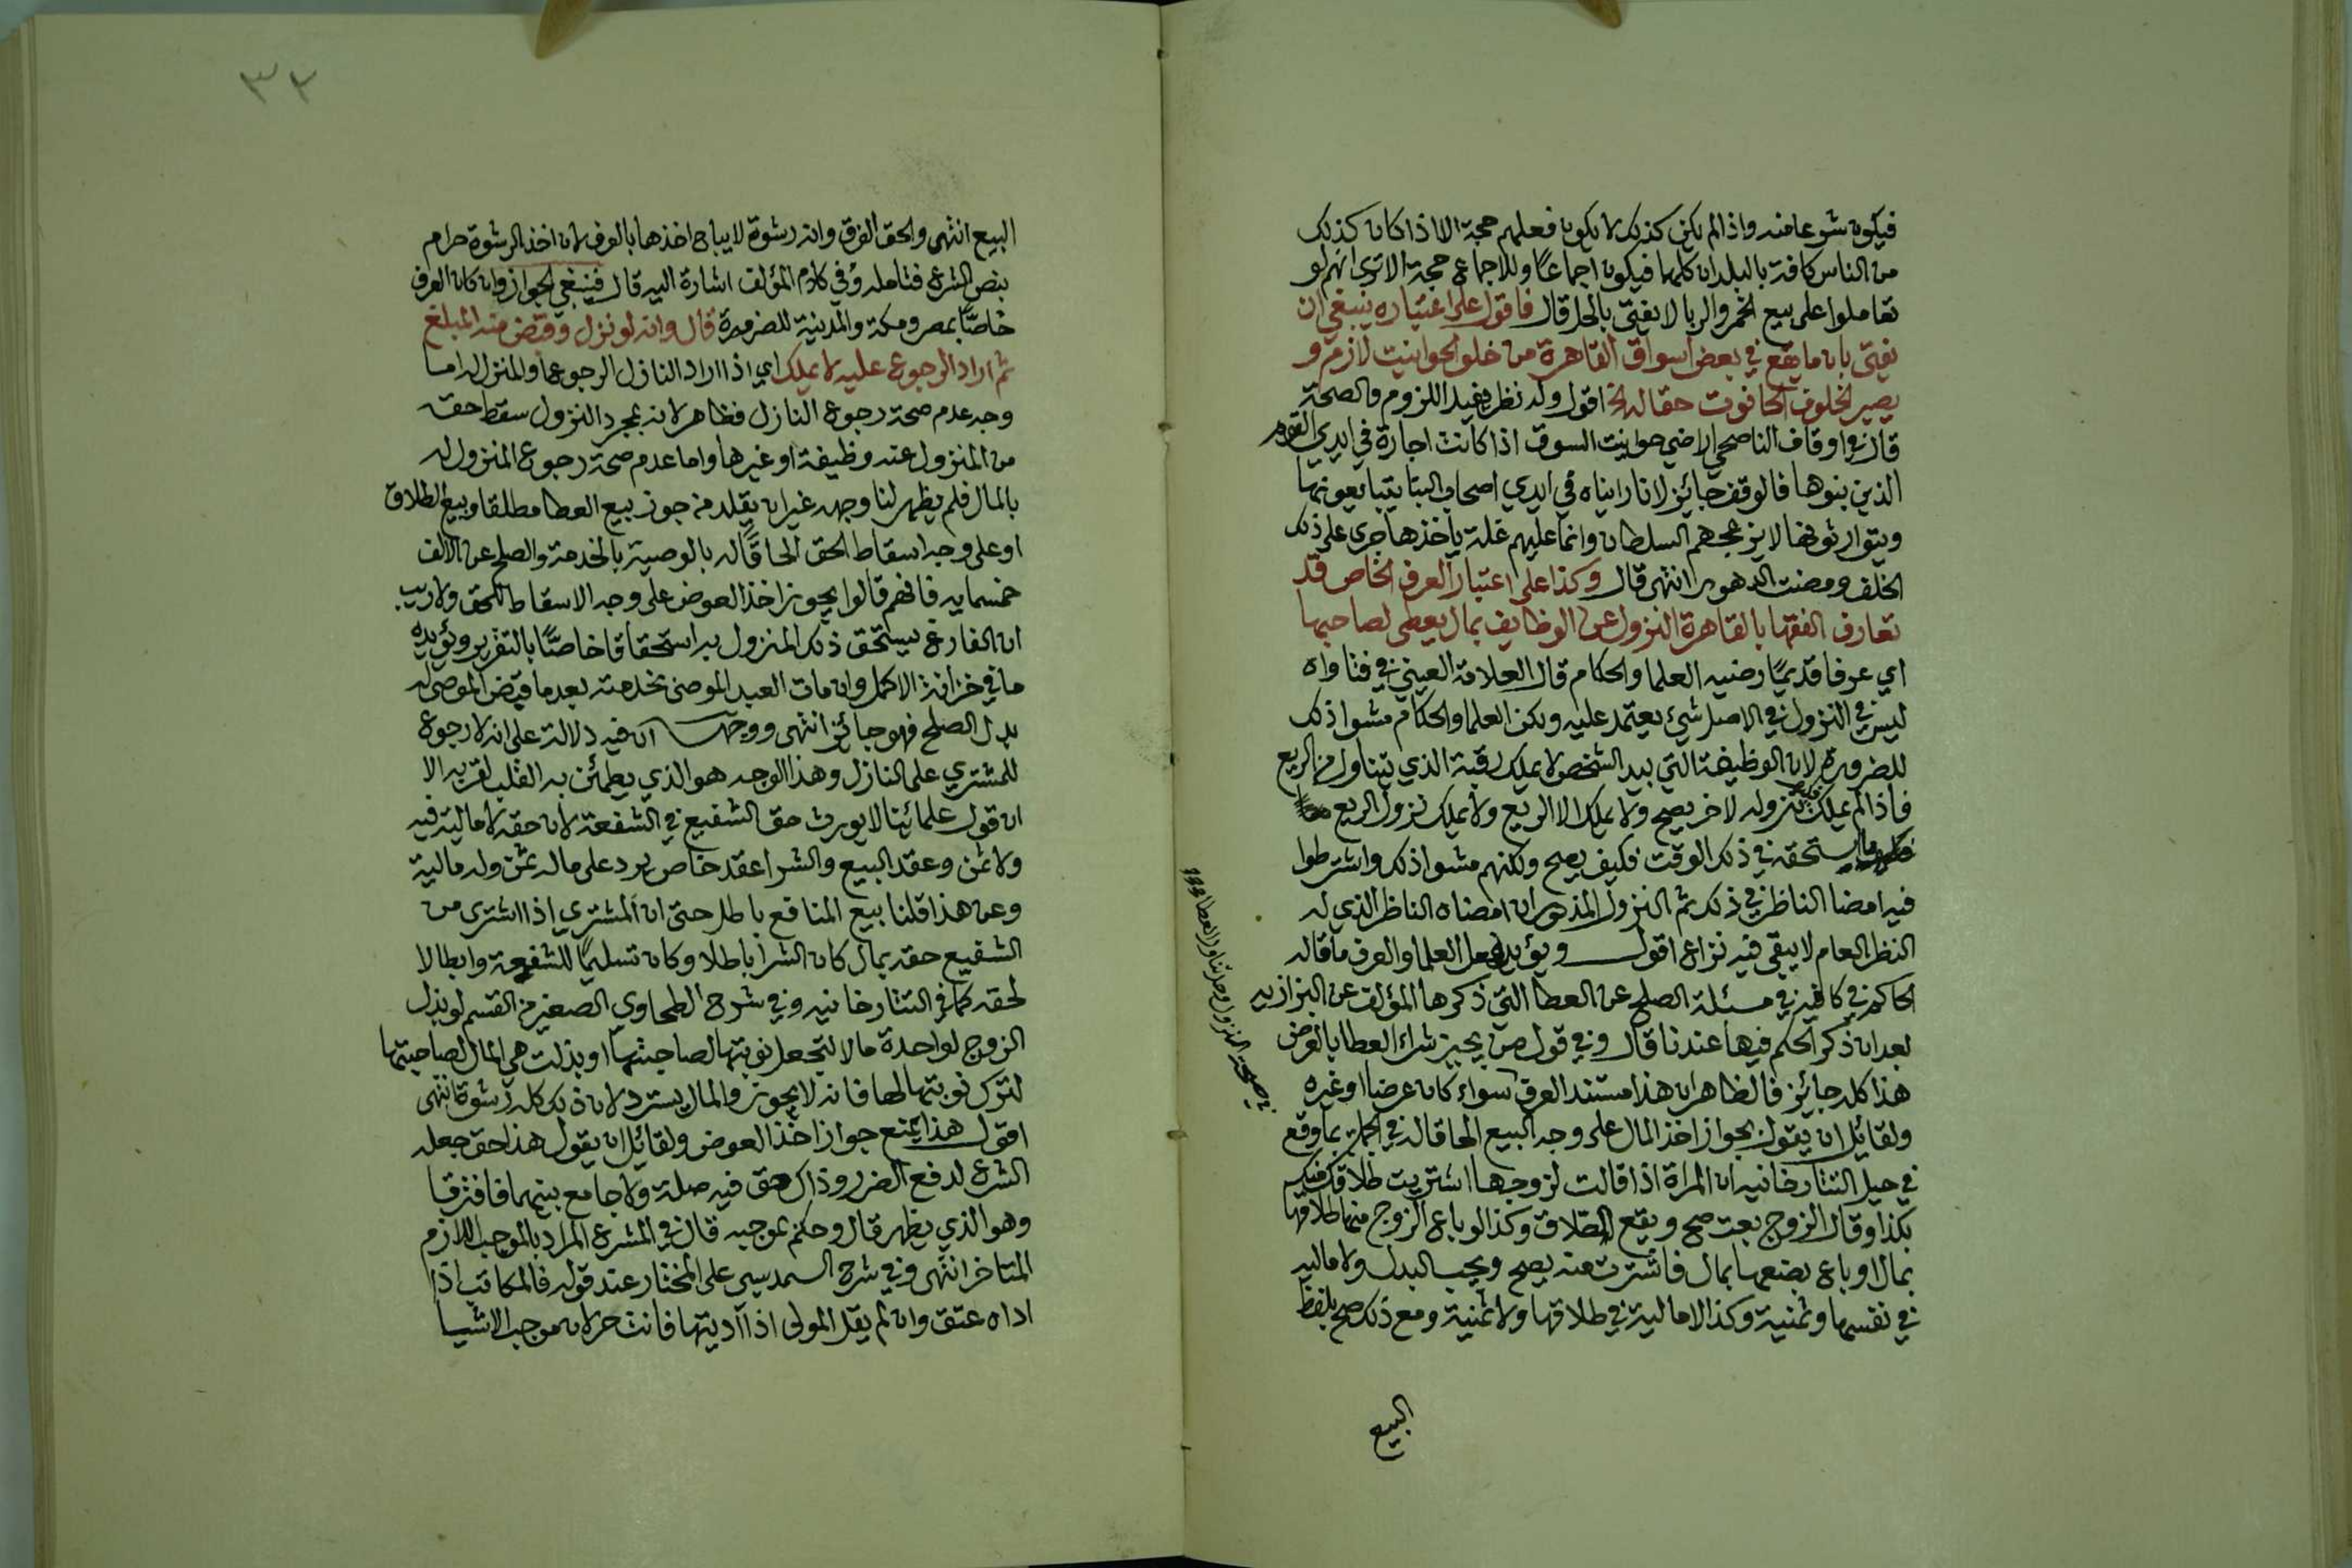 فيكون شرعا منه واذا لم يكن كذلك لا يكون فعلهم حجة الا اذا كان كذلك
من الناس كافة بالبلدان كلها فيكون اجماعًا والاجماع حجة الا ترى انهم لو
تعاملوا على بيع الخمر والربا لا يفتى بالحل قال فاقول على اعتباره ينبغي ان
يفتى بان ما يقع في بعض اسواق القاهرة من خلو الحوانيت لازم و
يصير الخلو في الحانوت حقا له الخ اقول وله نظر يفيد اللزوم والصحة
قال في اوقاف الناصحي اراضي حوانيت السوق اذا كانت اجارة في ايدي القوم
الذين بنوها فالوقف جائز لانا رايناه في ايدي اصحاب البنا يتبايعونها
ويتوارثونها لا يزعجهم السلطان وانما عليهم غلة ياخذها جرى على ذلك
الخلف ومضت الدهور انتهى قال وكذا على اعتبار العرف الخاص قد
تعارف الفقها بالقاهرة النزول عن الوظايف بمال يعطى لصاحبها
اي عرفا قديمًا رضيه العلما والحكام قال العلامة العيني في فتاواه
ليس في النزول في الاصل شئ يعتمد عليه ولكن العلما والحكام مشوا ذلك
للضرورة لان الوظيفة التي بيد الشخص لا يملك رقبة الذي يتناول من الريع
فاذا لم يملك فكيف نزوله لاخر يصح ولا يملك الا الريع ولا يملك نزول الريع
ما يستحقه في ذلك الوقت فكيف يصح ولكنهم مشوا ذلك واشترطوا
فيه امضا الناظر في ذلك ثم النزول المذكور ان امضاه الناظر الذي له
النظر العام لا يبقى فيه نزاع اقول ويؤيد فعل العلما والعرف ما قاله
الحاكم في كافيه في مسئلة الصلح عن العطا التي ذكرها المؤلف عن البزازيه
بعد ان ذكر الحكم فيها عندنا قال وفي قول من يجيز شراء العطا بالعرض
هذا كله جائز فالظاهر ان هذا مستند العرف سواء كان عرضا او غيره
ولقائل ان يقول بجواز اخذ المال على وجه البيع الحاقا له في الجملة بما وقع
في حيل التتارخانيه ان المراة اذا قالت لزوجها اشتريت طلاقك منك
بكذا وقال الزوج بعت صح ويقع الطلاق وكذا لو باع الزوج منها طلاقها
بمال او باع بضعها بمال فاشترت منه يصح ويجب البدل ولا ماليه
في نفسها وثمنية وكذا لا مالية في طلاقها ولا ثمنية ومع ذلك صح بلفظ
البيع
في صحة النزول وحل تناول العطا
٣٢
البيع انتهى والحق الفرق وانه رشوة لا يباح اخذها بالعرف لان اخذ الرشوة حرام
بنص الشرع فتامله وفي كلام المؤلف اشارة اليه قال فينبغي الجواز وان كان العرف
خاصًّا بمصر ومكة والمدينة للضرورة قال وانه لو نزل وقبض منه المبلغ
ثم اراد الرجوع عليه لا يملك اي اذا اراد النازل الرجوع او المنزول له اما
وجه عدم صحة رجوع النازل فظاهر لانه بمجرد النزول سقط حقه
من المنزول عنه وظيفة او غيرها واما عدم صحة رجوع المنزول له
بالمال فلم يظهر لنا وجهه غير ان يقلد من جوز بيع العطا مطلقا وبيع الطلاق
او على وجه اسقاط الحق الحاقًا له بالوصية بالخدمة والصلح عن الالف
خمسمايه فانهم قالوا يجوز اخذ العوض على وجه الاسقاط للحق ولا ريب
ان الفارغ يستحق ذلك المنزول به استحقاقا خاصًّا بالتقرير ويؤيده
ما في خزانة الاكمل وان مات العبد الموصى بخدمته بعد ما قبض الموصى له
بدل الصلح فهو جائز انتهى ووجهه ان فيه دلالة على انه لا رجوع
للمشتري على النازل وهذا الوجه هو الذي يطمئن به القلب لقربه الا
ان قول علمائنا لا يورث حق الشفيع في الشفعة لان حقه لا مالية فيه
ولا ثمن وعقد البيع والشرا عقد خاص يرد على ماله ثمن وله مالية
وعن هذا قلنا بيع المنافع باطل حتى ان المشتري اذا اشترى من
الشفيع حقه بمال كان الشرا باطلا وكان تسليمًا للشفعة وابطالا
لحقه كما في التتارخانيه وفي شرح الطحاوي الصغير من القسم لو بذل
الزوج لواحدة مالا لتجعل نوبتها لصاحبتها او بذلت هي المال لصاحبتها
لترك نوبتها لها فانه لا يجوز والمال يسترد لان ذلك كله رشوة انتهى
اقول هذا يمنع جواز اخذ العوض ولقائل ان يقول هذا حق جعله
الشرع لدفع الضرر وذاك حق فيه صلة ولا جامع بينهما فافترقا
وهو الذي يظهر قال وحكم بموجبه قال في المشرع المراد بالموجب اللازم
المتاخر انتهى وفي شرح السمديسي على المختار عند قوله فالمكاتب اذا
اداه عتق وان لم يقل المولى اذا اديتها فانت حر لان موجب الاشيا